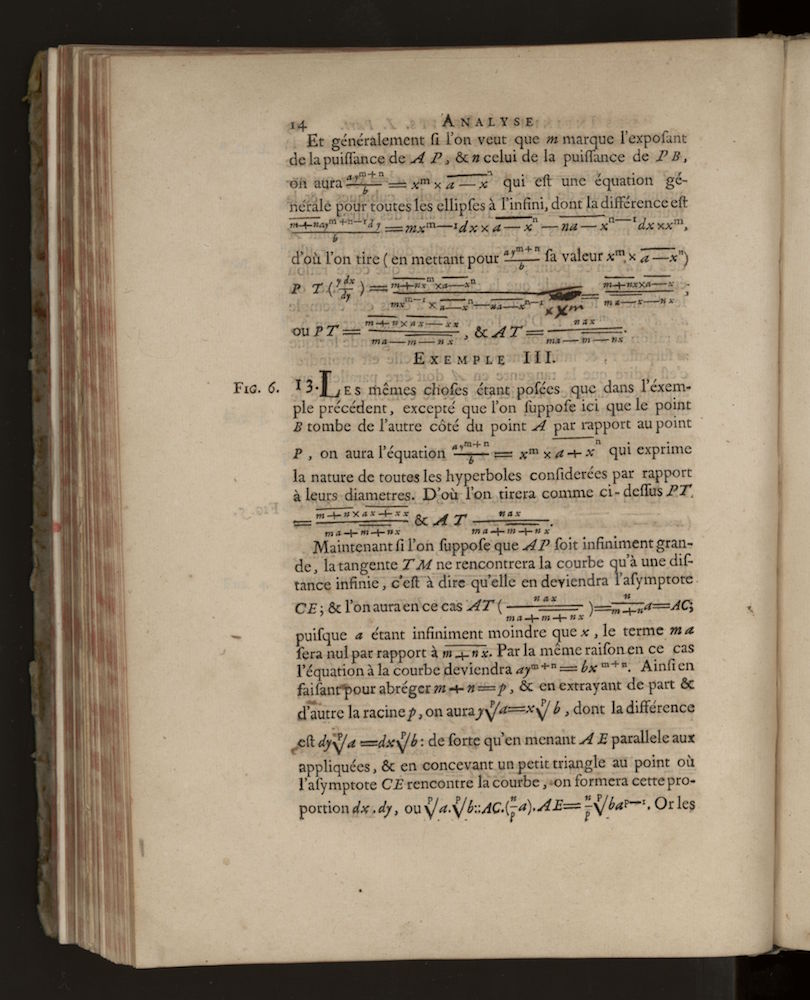 14 ANALYSE
Et généralement ſi l'on veut que m marque l'expoſant
de la puiſſance de A P, & n celui de la puiſſance de P B,
on aura ay^{m+n}/b = x^m × \overline{a — x}^n qui eſt une équation gé-
nérale pour toutes les ellipſes à l'infini, dont la différence eſt
\overline{m+n}ay^{m+n—1}dy/b = mx^{m—1}dx × \overline{a — x}^n — \overline{na — x}^{n—1}dx ×x^m,
d'où l'on tire ( en mettant pour ay^{m+n}/b ſa valeur x^m × \overline{a — x}^n)
P T (y dx/dy) = \overline{m+n}x^m ×\overline{a—x}^n / mx^{m—1} × \overline{a—x}^n—\overline{na—x}^{n—1} ×x^m = \overline{m+n}x×\overline{a—x} / \overline{ma—x}—nx ;
ou PT = \overline{m+n}×\overline{ax—xx} / ma — \overline{m — n}x , & AT = nax / ma — \overline{m — n}x.
EXEMPLE III.
FIG. 6. 13. LES mêmes choſes étant poſées que dans l'éxem-
ple précédent, excepté que l'on ſuppoſe ici que le point
B tombe de l'autre côté du point A par rapport au point
P, on aura l'équation ay^{m+n}/b = x^m × \overline{a + x}^n qui exprime
la nature de toutes les hyperboles conſiderées par rapport
à leurs diametres. D'où l'on tirera comme ci-deſſus PT
= \overline{m+n}×\overline{ax+xx} / ma+\overline{m+n}x & A T nax / ma+\overline{m+n}x.
Maintenant ſi l'on ſuppoſe que AP ſoit infiniment gran-
de, la tangente TM ne rencontrera la courbe qu'à une diſ-
tance infinie, c'eſt à dire qu'elle en deviendra l'aſymptote
CE; & l'on aura en ce cas AT (nax / ma+\overline{m+n}x) = n/\overline{m+n} a = AC;
puiſque a étant infiniment moindre que x, le terme ma
ſera nul par rapport à \overline{m+n}x. Par la même raiſon en ce cas
l'équation à la courbe deviendra ay^{m+n} = bx^{m+n}. Ainſi en
faiſant pour abréger m + n = p, & en extrayant de part &
d'autre la racine p, on aura y\sqrt[p]{a} = x\sqrt[p]{b}, dont la différence
eſt dy\sqrt[p]{a} = dx\sqrt[p]{b} : de ſorte qu'en menant A E parallele aux
appliquées, & en concevant un petit triangle au point où
l'aſymptote CE rencontre la courbe, on formera cette pro-
portion dx. dy, ou \sqrt[p]{a}. \sqrt[p]{b} :: AC. (n/p a). AE = n/p \sqrt[p]{ba^{p—1}}. Or les